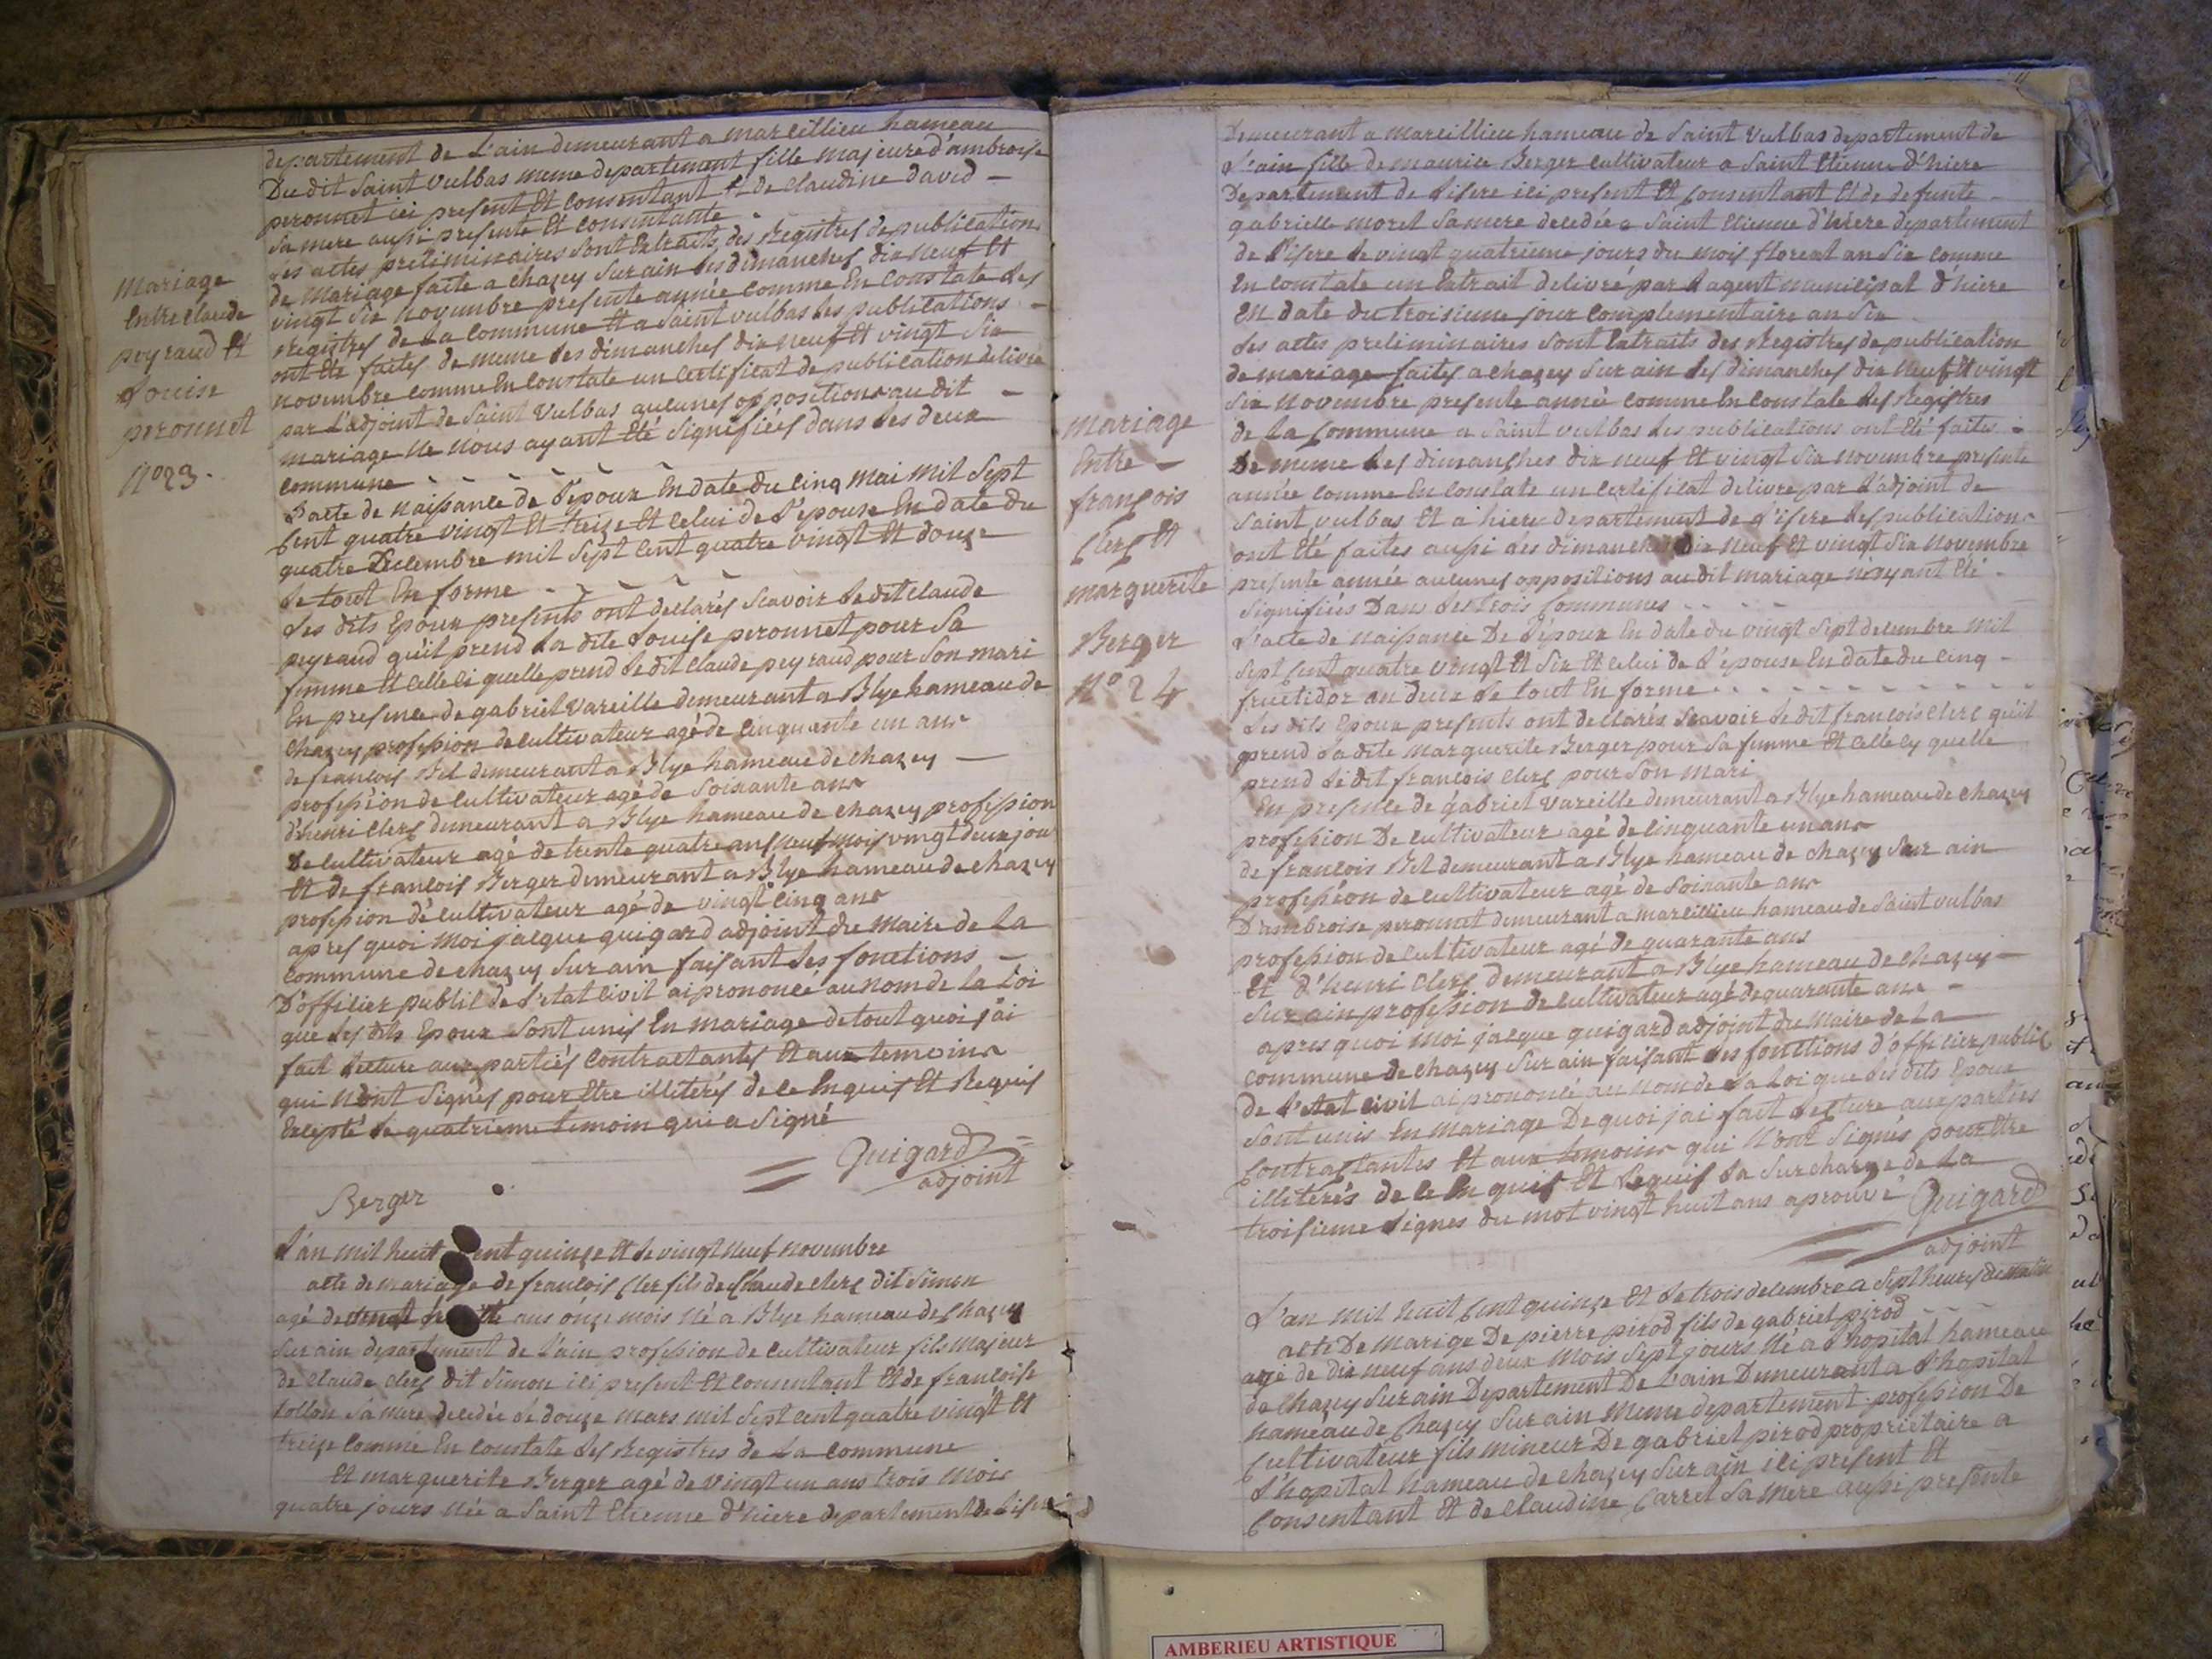 departement de L'ain demeurant a marcillieu hameau
Du dit Saint Vulbas meme departement fille majeure d'ambroise
peronnet ici present Et consentant & de claudine david -
sa mere aussi presente Et consentante -
Les actes preliminaires sont Extraits des Registres de publications
de Mariage faite a chazey Sur ain Les dimanches dix Neuf Et
vingt Six Novembre presente année comme En Constate Les
Registres de La Commune Et a Saint vulbas Les publications -
ont Eté faites de meme Les dimanches dix neuf Et vingt Six
novembre comme En Constate un certificat de publication delivré
par L'adjoint de Saint Vulbas aucunes oppositions au dit -
mariage Ne Nous ayant Eté Signifiées dans Les deux
commune - - - - - -
L'acte de Naissance de L'epoux En date du cinq Mai Mil Sept
Cent quatre vingt Et treize Et celui de L'epouse En date du
quatre Decembre mil Sept Cent quatre vingt Et douze
Le tout En forme - - - - -
Les dits Epoux presents ont declarés Scavoir Le dit claude
peyraud qu'il prend La dite Louise peronnet pour Sa
femme Et celle ci quelle prend Le dit claude peyraud pour Son mari
En presence de gabriel Vareille demeurant a Blye hameau de
chazey profession de cultivateur agé de cinquante un ans
de françois Bel demeurant a Blye hameau de chazey -
profession de cultivateur agé de Soixante ans
d'henri Clerc demeurant a Blye hameau de chazey profession
De cultivateur agé de trente quatre ans Neuf mois vingt deux jour
Et de françois Berger demeurant a Blye hameau de chazey
profession de cultivateur agé de vingt cinq ans
apres quoi Moi jacque quigard adjoint du Maire de La
commune de chazey Sur ain faisant Les fonctions -
D'officier public de L'etat civil ai prononcé au Nom de La Loi
que Les dits Epoux Sont unis En Mariage de tout quoi j'ai
fait Lecture aux parties Contractantes Et aux temoins
qui N'ont Signés pour Etre illiterés de ce Enquis Et Requis
Excepté Le quatrieme temoin qui a Signé
Quigard
adjoint
Berger
Mariage
Entre claude
peyraud Et
Louise
peronnet
N° 23.
L'an mil huit cent quinze Et Le vingt Neuf Novembre
acte de mariage de françois Clerc fils de Claude clerc dit Simon
agé de vingt huit ans onze mois Né a Blye hameau de Chazey
Sur ain departement de L'ain profession de cultivateur fils Majeur
de claude clerc dit Simon ici present Et consentant Et de françoise
Sa mere decedée Le douze Mars mil Sept cent quatre vingt Et
treize comme En constate Les Registres de La commune
Et marguerite Berger agé de vingt un ans trois Mois
quatre jours Née a Saint Etienne d'hiere departement de
Demeurant a Marcillieu hameau de Saint Vulbas departement de
L'ain fille de maurice Berger cultivateur a Saint Etienne d'hiere
Departement de L'isere ici present Et Consentant Et de defunte
gabrielle moret Sa mere decedée a Saint Etienne d'hiere departement
de L'isere Le vingt quatrieme jours du Mois floreal an Six comme
En constate un Extrait delivré par L'agent municipal d'hiere
En date du troisieme jour complementaire an Six
Les actes preliminaires sont Extraits des Registres de publication
de mariage faites a chazey Sur ain Les dimanches dix Neuf Et vingt
Six Novembre presente année comme En constate Les Registres
de La Commune a Saint vulbas Les publications ont Eté faites -
De meme Les dimanches dix neuf Et vingt Six novembre presente
année comme En constate un certificat delivre par L'adjoint de
Saint vulbas Et a hiere departement de L'isere Les publications
ont Eté faites aussi Les dimanches dix Neuf Et vingt Six Novembre
presente année aucunes oppositions au dit mariage N'ayant Eté -
Signifiées Dans Les trois Communes - - - -
L'acte de Naissance De L'epoux En date du vingt Sept decembre Mil
Sept Cent quatre vingt Et Six Et celui de L'epouse En date du cinq -
fructidor an deux Le tout En forme - - - - - - - -
Les dits Epoux presents ont declarés Scavoir Le dit françois clerc qu'il
prend La dite Marguerite Berger pour Sa femme Et celle cy quelle
prend Le dit françois clerc pour Son Mari
En presence de gabriel vareille demeurant a Blye hameau de chazey
profession De cultivateur agé de cinquante un ans
de françois Bel demeurant a Blye hameau de chazey Sur ain
profession de cultivateur agé de Soixante ans
D'ambroise peronnet demeurant a marcillieu hameau de Saint vulbas
profession de cultivateur agé de quarante ans
Et d'henri Clerc demeurant a Blye hameau de Chazey -
Sur ain profession de cultivateur agé de quarante ans -
apres quoi Moi jacque quigard adjoint du Maire de La
commune de chazey Sur ain faisant Les fonctions d'officier public
de L'etat civil ai prononcé au Nom de La Loi que Les dits Epoux
Sont unis En mariage De quoi j'ai fait Lecture aux parties
Contractantes Et aux temoins qui N'ont Signés pour Etre
illiterés de ce Enquis Et Requis La Surcharge de La
troisieme Lignes du mot vingt huit ans aprouvé
Quigard
adjoint
Mariage
Entre -
françois
Clerc Et
marguerite
Berger
N° 24
L'an Mil huit Cent quinze Et Le trois decembre a Sept heures du Matin
acte De Marige De pierre pirod fils de gabriel pirod - - -
agé de dix neuf ans deux Mois Sept jours Né a L'hopital hameau
de Chazey Sur ain Departement De L'ain Demeurant a L'hopital
hameau de Chazey Sur ain Meme departement profession De
Cultivateur fils mineur De gabriel pirod proprietaire a
L'hopital hameau de chazey Sur ain ici present Et
Consentant Et de claudine Carret Sa Mere aussi presente
AMBERIEU ARTISTIQUE